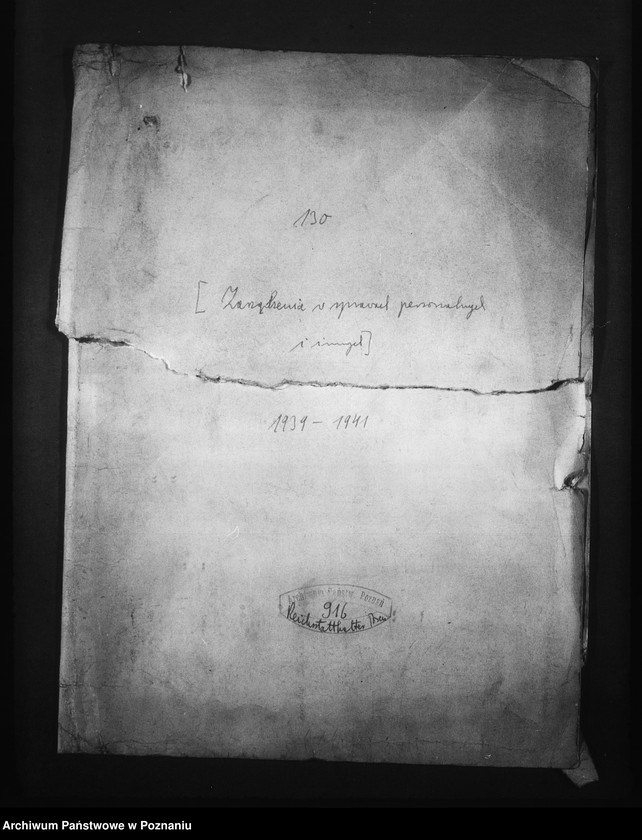 130
[ Zarządzenia w sprawach personalnych
i innych]
1939 – 1941
Archiwum Państw. Poznań
916
Reichsstatthalter
Archiwum Państwowe w Poznaniu